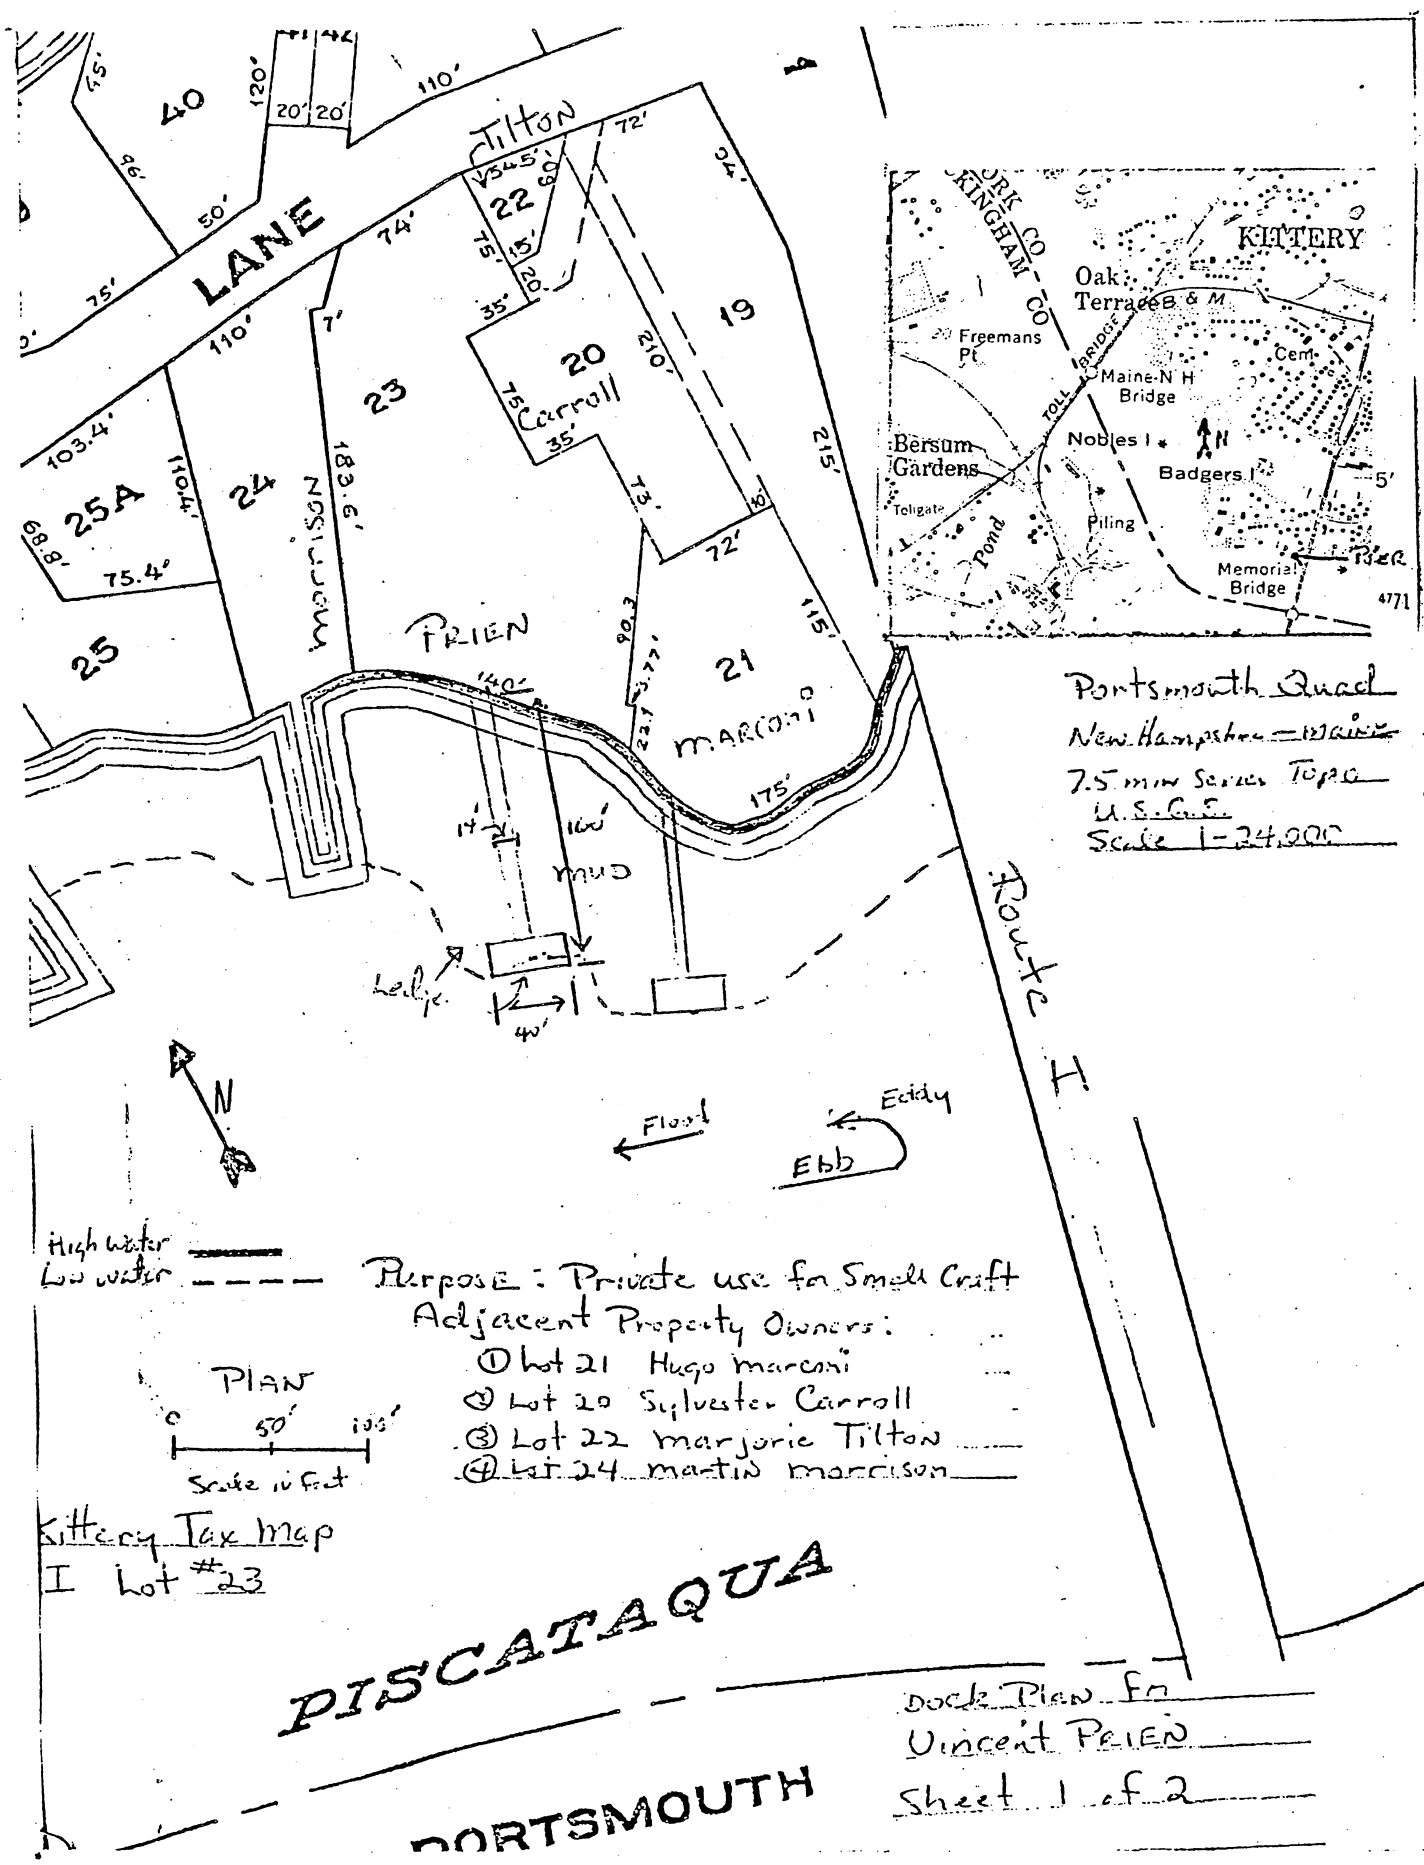 41 42
45'
40
120'
20' 20'
110'
96'
50'
75'
LANE
Tilton
54.5'
22
60'
75'
15'
20'
72'
94'
74'
35'
110'
7'
23
20
Carroll
75'
35'
210'
19
215'
73'
72'
115'
103.4'
25A
68.8'
75.4'
110.4'
24
MORRISON
183.6'
25
PRIEN
90.3
3.77'
22.1
21
MARCONI
175'
140'
14'
100'
MUD
Ledge
40'
N
Flood
Eddy
Ebb
Route 1
YORK CO
KINGHAM CO
KITTERY
Oak
Terrace
B & M
Freemans
Pt
TOLL BRIDGE
Cem
Maine-N H
Bridge
Nobles I
N
Bersum
Gardens
Badgers I
5'
Tollgate
Pond
Piling
PIER
Memorial
Bridge
4771
Portsmouth Quad
New Hampshire - Maine
7.5 min Series Topo
U.S.G.S.
Scale 1-24,000
High water
Low water
Purpose: Private use for Small Craft
Adjacent Property Owners:
① Lot 21 Hugo Marconi
② Lot 20 Sylvester Carroll
③ Lot 22 Marjorie Tilton
④ Lot 24 Martin Morrison
PLAN
0 50' 100'
Scale in feet
Kittery Tax Map
I Lot #23
PISCATAQUA
PORTSMOUTH
Dock Plan Fn
Vincent PRIEN
Sheet 1 of 2